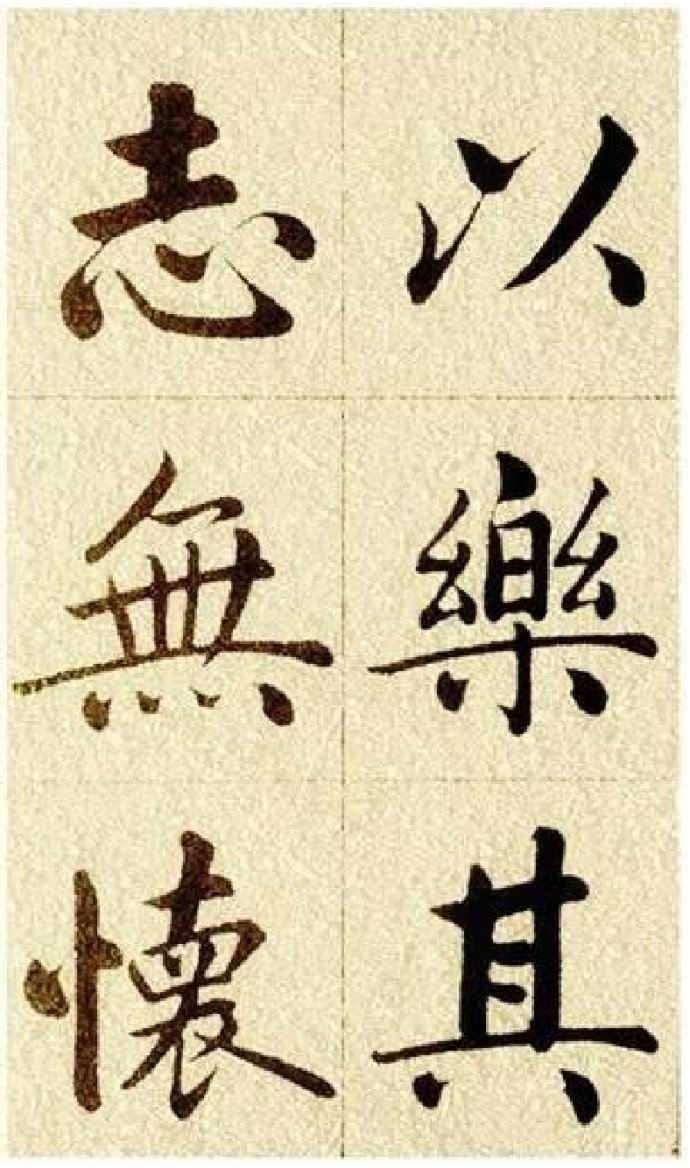 以樂其
志無懷